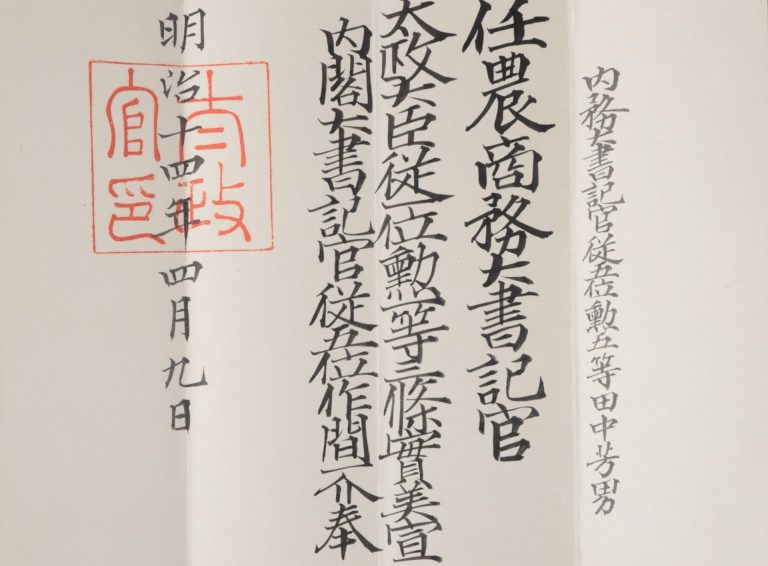 内務大書記官従五位勲五等田中芳男
任農商務大書記官
太政大臣従一位勲一等三條實美宣
内閣大書記官従五位作間一介奉
明治十四年四月九日
太政官印